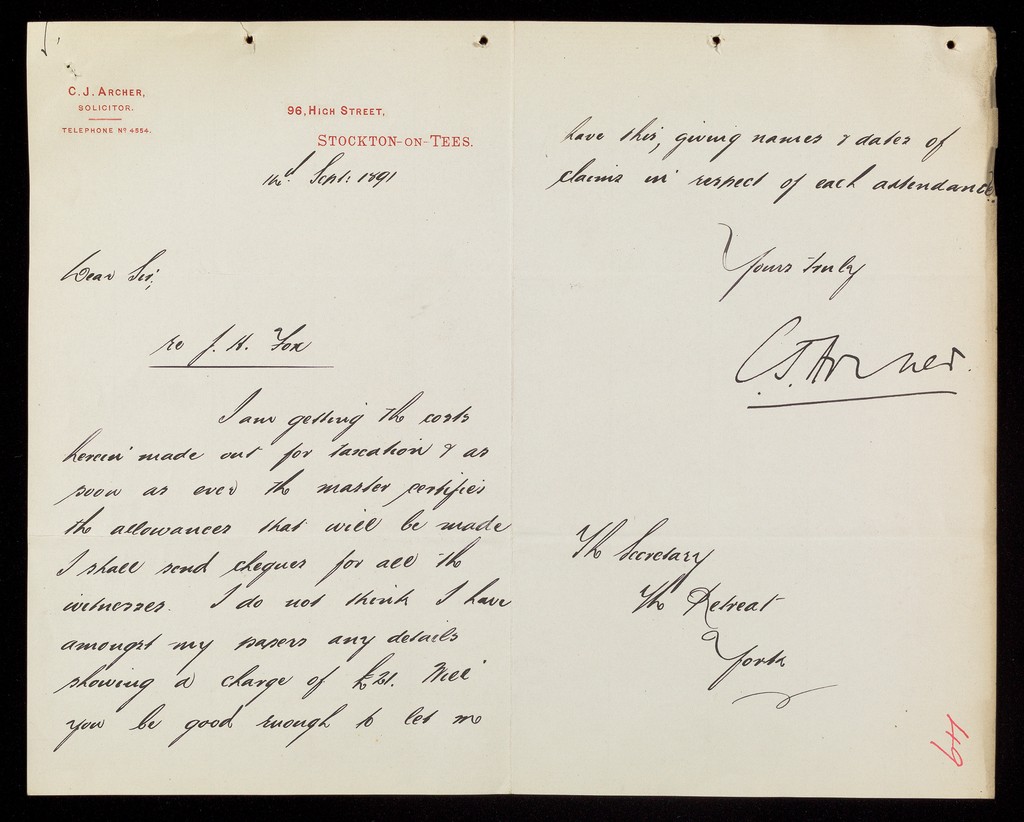 C. J. ARCHER,
SOLICITOR.
TELEPHONE No 4554.
96, HIGH STREET,
STOCKTON-ON-TEES.
Sept: 1891
Dear Sir,
re J. H. Fox
I am getting the costs
herein made out for taxation & as
soon as ever the master certifies
the allowances that will be made
I shall send cheques for all the
witnesses. I do not think I have
amongst my papers any details
showing a charge of £21. Will
you be good enough to let me
have this, giving names & dates of
claims in respect of each attendance
Yours truly
C.J. Archer.
The Secretary
The Retreat
York